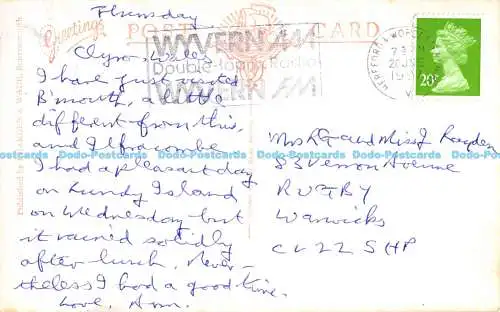 Thursday
Greetings
POST CARD
WYVERN FM
Double-focus Radio
WYVERN FM
HEREFORD & WORCS
20 JNE
20P
Clyro, Wales
I have just visited
B'mouth, a little
different from this,
and Ilfracombe
I had a pleasant day
on Lundy Island
on Wednesday but
it rained solidly
after lunch. Never-
theless I had a good time.
Love, Ann.
Mrs R G and Miss J
83 Vernon Avenue
RUGBY
Warwicks
CV22 5HP
Do-Postcards Do-Postcards Do-Postcards Do-Postcards Do-Postcards Do-Postcards